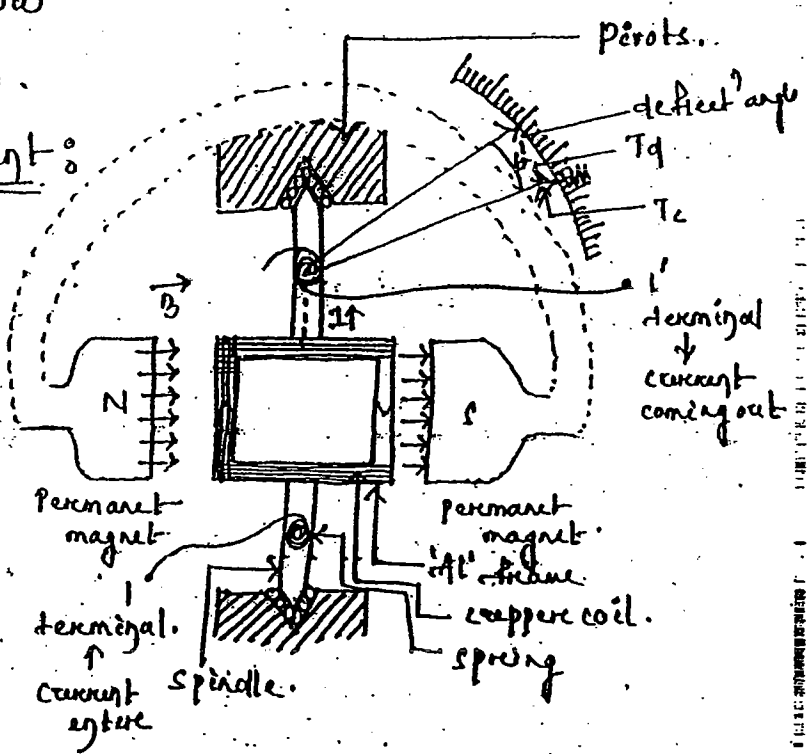 Pivots..
deflectⁿ angle
Td
Tc
B
I↑
1'
terminal
current
coming out
N
S
Permanet
magnet
permanet
magnet.
'Al' frame
copper coil.
spring
1
terminal.
current
enter
Spindle.